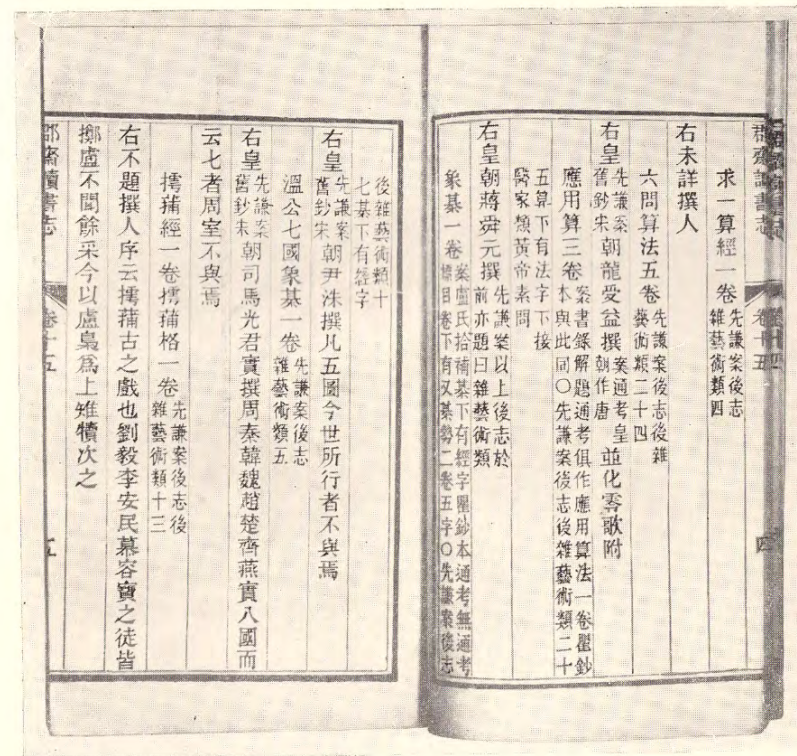 郡齋讀書志 卷十五 四
求一算經一卷先謙案後志雜藝術類四
右未詳撰人
六問算法五卷先謙案後志後雜藝術類二十四
右皇先謙案舊鈔宋朝龍受益撰案通考皇朝作唐並化零歌附
應用算三卷案書錄解題通考俱作應用算法一卷瞿鈔本與此同〇先謙案後志後雜藝術類二十
五算下有法字下接醫家類黃帝素問
右皇朝蔣舜元撰先謙案以上後志於前亦題曰雜藝術類
象棊一卷案盧氏拾補棊下有經字瞿鈔本通考無通考標目卷下有又棊勢二卷五字〇先謙案後志
後雜藝術類十七棊下有經字
右皇先謙案舊鈔宋朝尹洙撰凡五圖今世所行者不與焉
溫公七國象棊一卷先謙案後志雜藝術類五
右皇先謙案舊鈔宋朝司馬光君實撰周秦韓魏趙楚齊燕實八國而
云七者周室不與焉
摴蒱經一卷摴蒱格一卷先謙案後志後雜藝術類十三
右不題撰人序云摴蒱古之戲也劉毅李安民慕容寶之徒皆
擲盧不聞餘采今以盧梟爲上雉犢次之
郡齋讀書志 卷十五 五